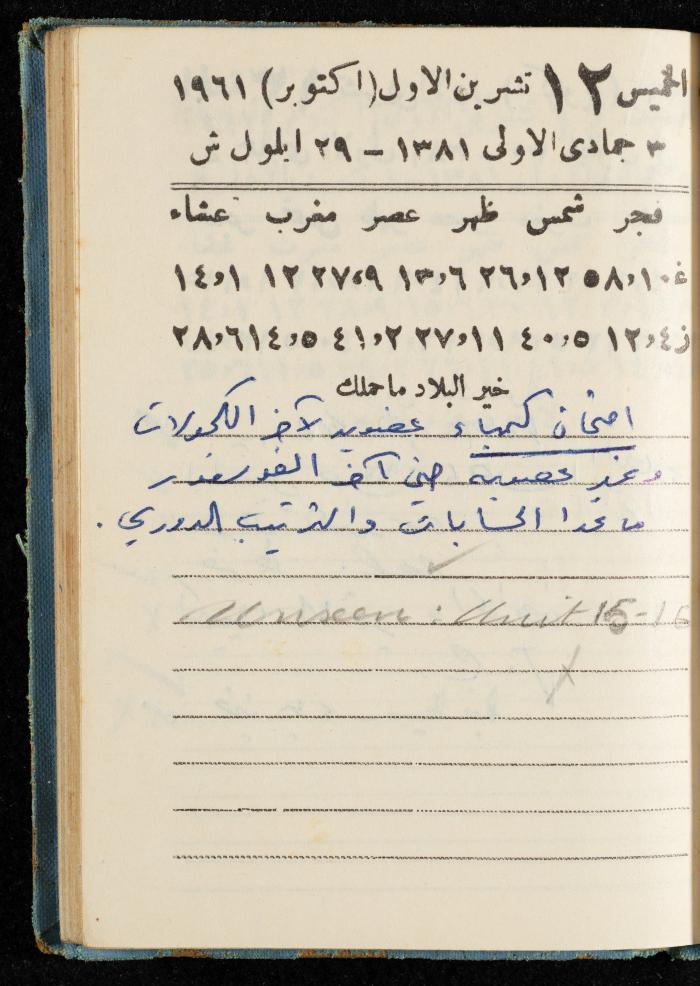 الخميس ١٢ تشرين الاول (اكتوبر) ١٩٦١
٣ جمادى الاولى ١٣٨١ – ٢٩ ايلول ش
فجر شمس ظهر عصر مغرب عشاء
غ ١٠٫٥٨ ١٢٫٢٦ ٦٫١٣ ٩٫٢٧ ١٢ ١٫١٤
ز ٤٫١٢ ٥٫٤٠ ١١٫٢٧ ٢٫٤١ ٥٫١٤ ٦٫٢٨
خير البلاد ما حملك
امتحان كيمياء عضوية لآخر الكحولات
وغير عضوية حتى آخر الفوسفور
ما عدا الحسابات والترتيب الدوري.
Unseen: Unit 15-16